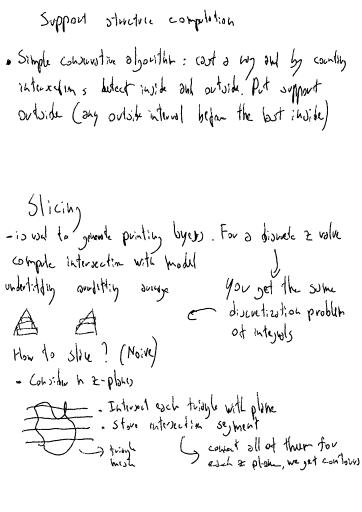 Support structure computation
• Simple conservative algorithm : cast a ray and by counting
intersections detect inside and outside. Put support
outside (any outside interval before the last inside)
Slicing
- is used to generate printing layers. For a discrete z value
compute intersection with model
You get the same
discretization problem
of integrals
How to slice ? (Naive)
• Consider n z-planes
• Intersect each triangle with plane
• store intersection segment
→ triangle
mesh
connect all of them for
each z plane, we get contours